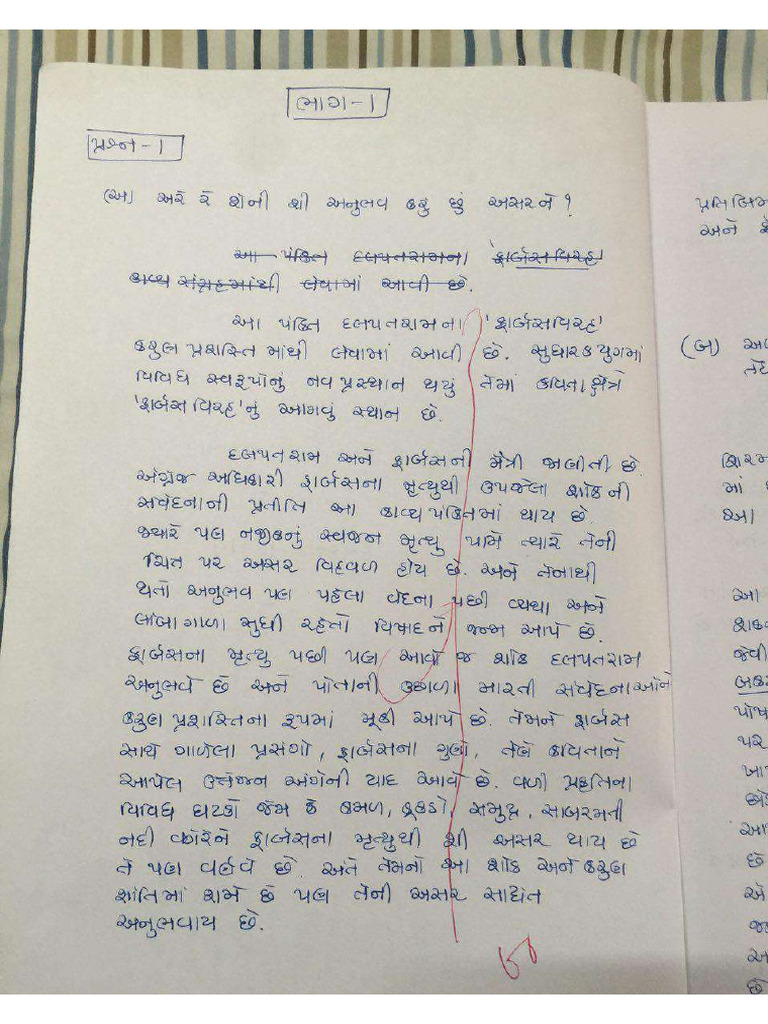 ભાગ-1
પ્રશ્ન-1
(અ) અરે રે શેની શી અનુભવ કરુ છું અસરને ?
આ પંક્તિ દલપતરામના 'ફાર્બસવિરહ'
કાવ્ય સંગ્રહમાંથી લેવામાં આવી છે.
આ પંક્તિ દલપતરામના 'ફાર્બસવિરહ'
કરુણ પ્રશસ્તિમાંથી લેવામાં આવી છે. સુધારકયુગમાં
વિવિધ સ્વરૂપોનું નવ પ્રસ્થાન થયું તેમાં કવિતાક્ષેત્રે
'ફાર્બસવિરહ'નું આગવું સ્થાન છે.
દલપતરામ અને ફાર્બસની મૈત્રી જાણીતી છે.
અંગ્રેજ અધિકારી ફાર્બસના મૃત્યુથી ઉપજેલા શોકની
સંવેદનાની પ્રતીતિ આ કાવ્યપંક્તિમાં થાય છે.
જ્યારે પણ નજીકનું સ્વજન મૃત્યુ પામે ત્યારે તેની
ચિત પર અસર વિહવળ હોય છે. અને તેનાથી
થતો અનુભવ પણ પહેલા વેદના પછી વ્યથા અને
લાંબાગાળા સુધી રહેતો વિષાદને જન્મ આપે છે.
ફાર્બસના મૃત્યુ પછી પણ આવો જ શોક દલપતરામ
અનુભવે છે અને પોતાની ઉછાળા મારતી સંવેદનાઓને
કરુણ પ્રશસ્તિના રૂપમાં મૂકી આપે છે. તેમને ફાર્બસ
સાથે ગાળેલા પ્રસંગો, ફાર્બસના ગુણો, તેણે કવિતાને
આપેલ ઉત્તેજન અંગેની યાદ આવે છે. વળી પ્રકૃતિના
વિવિધ ઘટકો જેમ કે કમળ, કૂકડો, સમુદ્ર, સાબરમતી
નદી વગેરેને ફાર્બસના મૃત્યુથી શી અસર થાય છે
તે પણ વર્ણવે છે. અંતે તેમનો આ શોક અને કરુણ
શાંતિમાં શમે છે પણ તેની અસર સાદ્યંત
અનુભવાય છે.
પ્રતિબિમ
અને
(બ)
માં
આ
આ
જેવી
પોષ
પર
છે
આ
છે